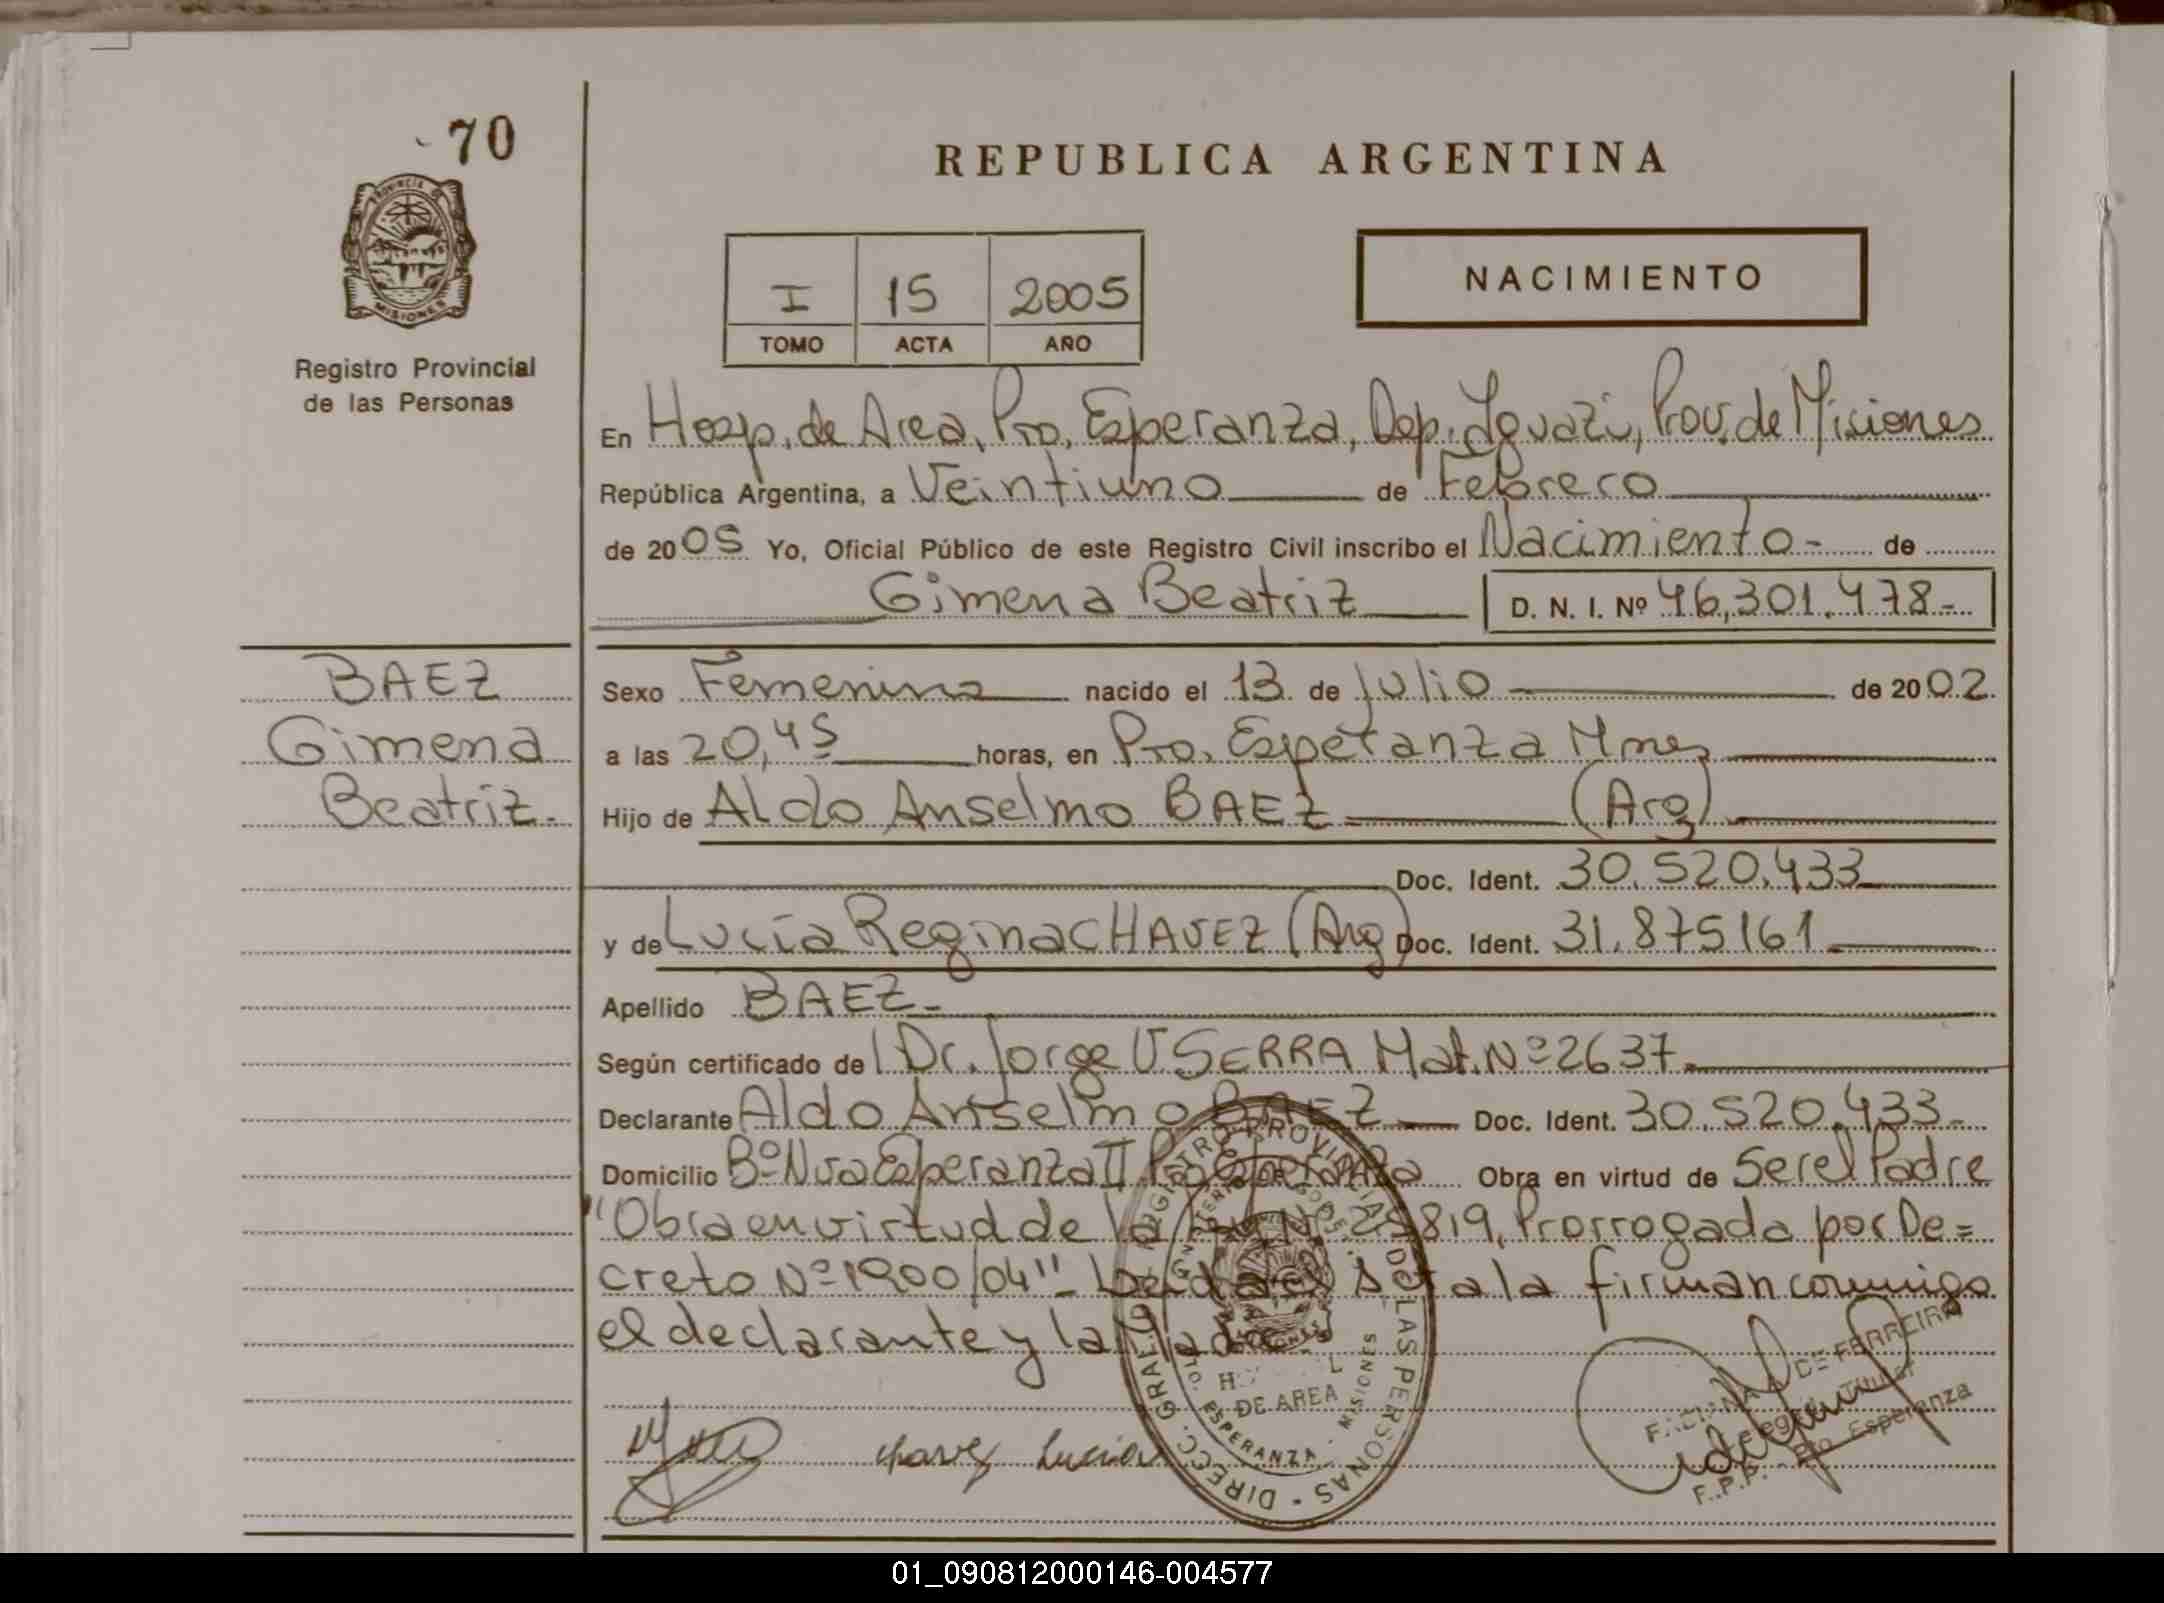 70
PROVINCIA DE
MISIONES
Registro Provincial
de las Personas
REPUBLICA ARGENTINA
I 15 2005
TOMO ACTA AÑO
NACIMIENTO
En Hosp. de Area, Pto. Esperanza, Dep. Iguazú, Prov. de Misiones
República Argentina, a Veintiuno de Febrero
de 2005 Yo, Oficial Público de este Registro Civil inscribo el Nacimiento - de
Gimena Beatriz D. N. I. Nº 46,301.478-
BAEZ
Gimena
Beatriz.
Sexo Femenino nacido el 13 de Julio de 2002
a las 20,45 horas, en Pto. Esperanza Mnes
Hijo de Aldo Anselmo BAEZ (Arg)
Doc. Ident. 30.520.433
y de Lucía Regina CHAVEZ (Arg) Doc. Ident. 31.875161
Apellido BAEZ-
Según certificado de Dr. Jorge V SERRA Mat. Nº 2637
Declarante Aldo Anselmo BAEZ Doc. Ident. 30.520.433-
Domicilio Bº Nva Esperanza II Pto Esperanza Obra en virtud de Ser el Padre
"Obra en virtud de la 25819, Prorrogada por De=
creto Nº 1900/04" - Leida el Acta la firman conmigo
el declarante y la Madre
chavez Lucia
DIRECC. GRAL. REGISTRO PROVINCIAL DE LAS PERSONAS
DE AREA
ESPERANZA - MISIONES
DE FERREIRA
Titular
Pto Esperanza
01_090812000146-004577